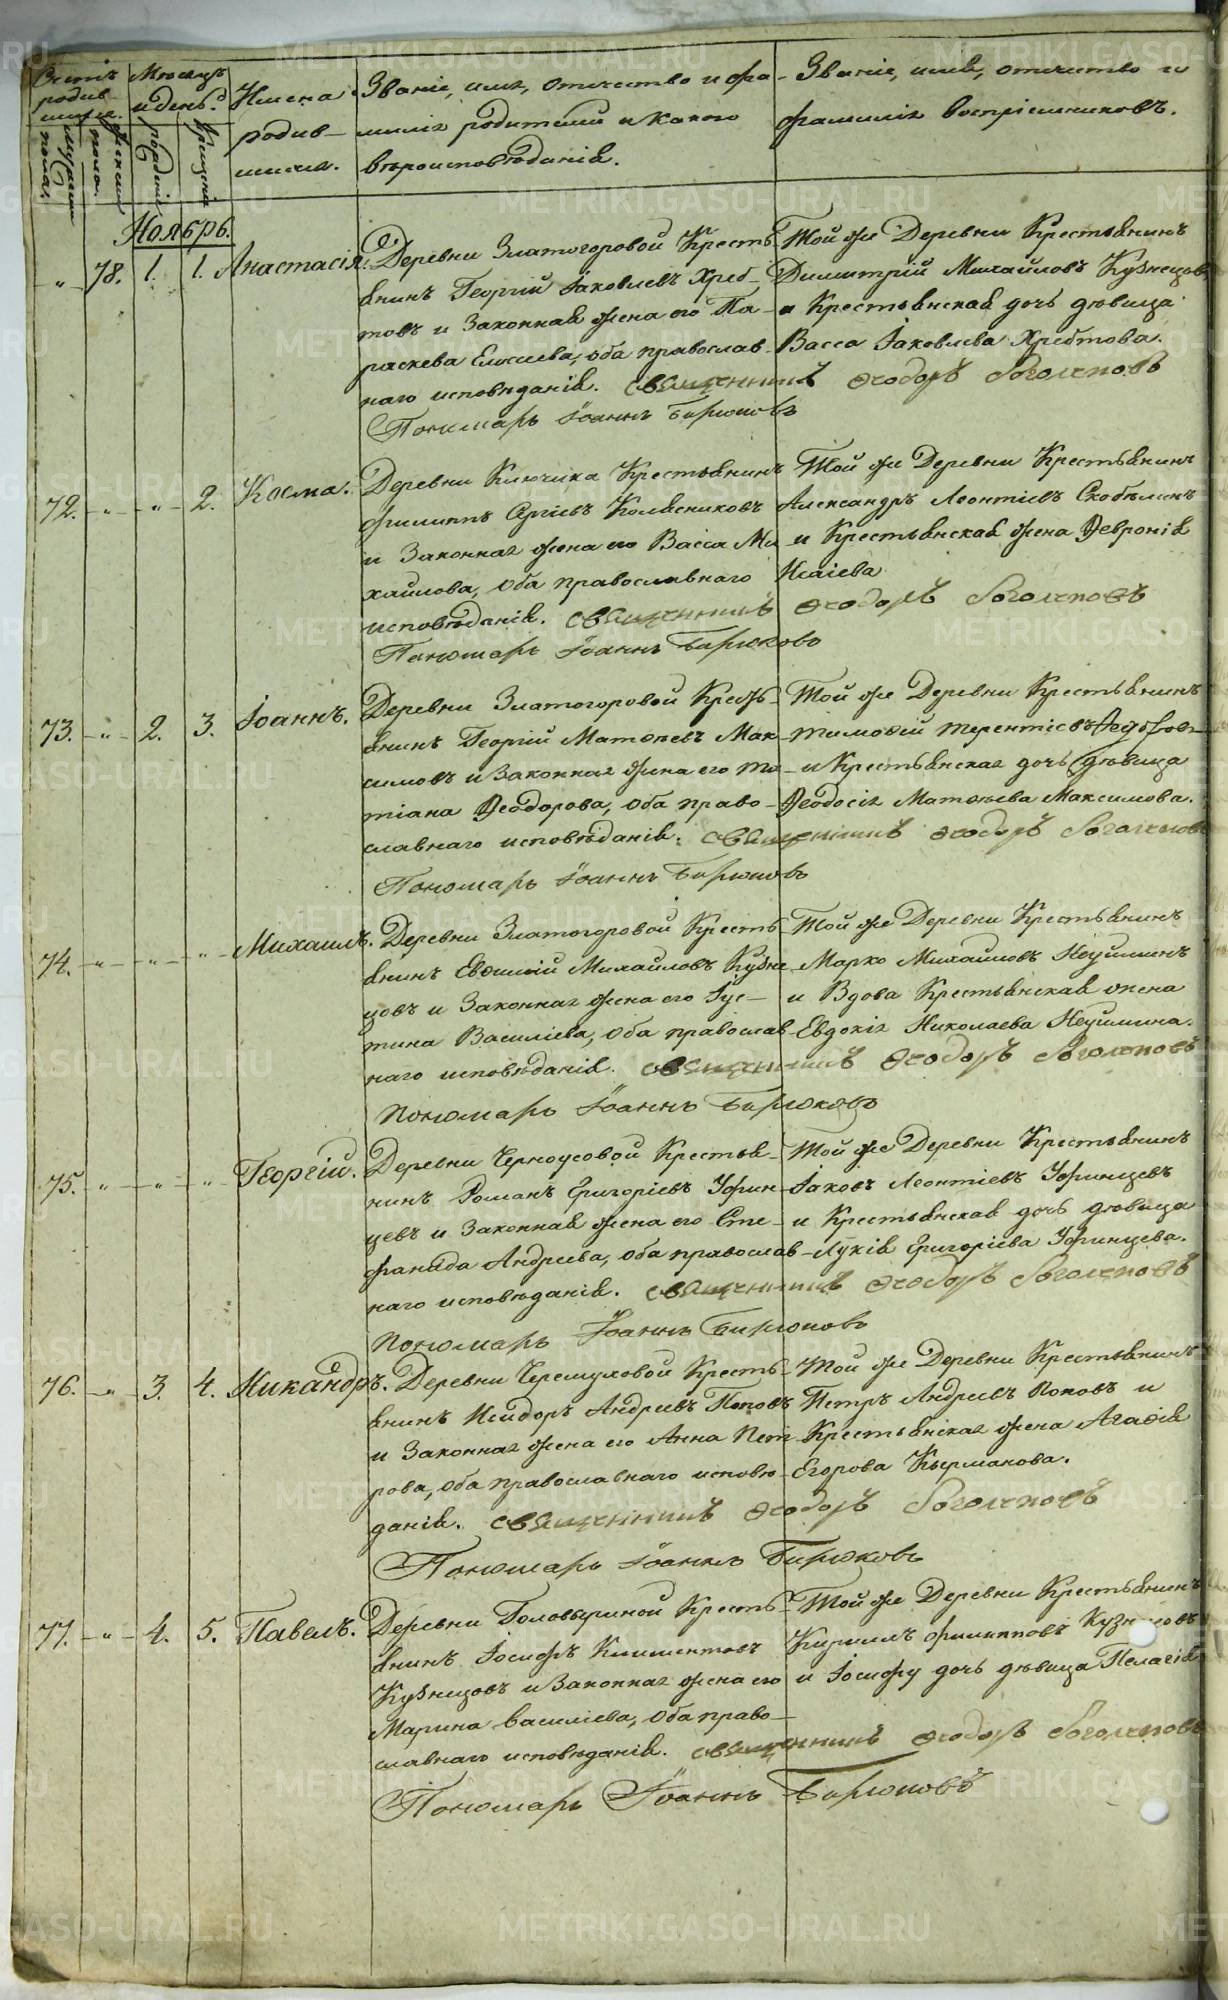 Счетъ родив- шихся.
Мѣсяцъ и день.
Имена родив- шихся.
Званіе, имя, отчество и фа-
милія родителей и какого
вѣроисповѣданія.
Званіе, имя, отчество и
фамилія воспріемниковъ.
мужеска пола.
женска пола.
рожденія
крещенія
Ноябрь.
" 78. 1. 1. Анастасія.
Деревни Златогоровой Кресть-
янинъ Георгій Іаковлевъ Хреб-
товъ и Законная жена его Па-
раскева Елисеева, оба православ-
наго исповѣданія. Священникъ Ѳеодоръ Боголеповъ
Пономарь Іоаннъ Бирюковъ
Той же Деревни Крестьянинъ
Димитрій Михайловъ Кузнецовъ
и Крестьянская дочь дѣвица
Васса Іаковлева Хребтова.
72. " " 2. Косма.
Деревни Ключика Крестьянинъ
Филиппъ Сергіевъ Колясниковъ
и Законная жена его Васса Ми-
хайлова, оба православнаго
исповѣданія. Священникъ Ѳеодоръ Боголеповъ
Пономарь Іоаннъ Бирюковъ
Той же Деревни Крестьянинъ
Александръ Леонтіевъ Скобѣлинъ
и Крестьянская жена Ѳевронія
Исаіева
73. " 2. 3. Іоаннъ.
Деревни Златогоровой Кресть-
янинъ Георгій Матѳѣевъ Мак-
симовъ и Законная жена его Та-
тіана Ѳеодорова, оба право-
славнаго исповѣданія. Священникъ Ѳеодоръ Боголеповъ
Пономарь Іоаннъ Бирюковъ
Той же Деревни Крестьянинъ
Тимоѳій Терентіевъ
и Крестьянская дочь дѣвица
Ѳеодосія Матѳѣева Максимова.
74. " " " Михаилъ.
Деревни Златогоровой Кресть-
янинъ Евѳимій Михайловъ Кузне-
цовъ и Законная жена его Іус-
тина Василіева, оба православ-
наго исповѣданія. Священникъ Ѳеодоръ Боголеповъ
Пономарь Іоаннъ Бирюковъ
Той же Деревни Крестьянинъ
Марко Михайловъ Неуйминъ
и Вдова Крестьянская жена
Евдокія Николаева Неуймина.
75. " " " Георгій.
Деревни Черноусовой Крестья-
нинъ Романъ Григоріевъ Уфин-
цевъ и Законная жена его Сте-
фанида Андреева, оба православ-
наго исповѣданія. Священникъ Ѳеодоръ Боголеповъ
Пономарь Іоаннъ Бирюковъ
Той же Деревни Крестьянинъ
Іаковъ Леонтіевъ Уфинцевъ
и Крестьянская дочь дѣвица
Лукія Григоріева Уфинцева.
76. " 3. 4. Никандръ.
Деревни Черемуховой Кресть-
янинъ Исидоръ Андреевъ Поповъ
и Законная жена его Анна Пет-
рова, оба православнаго исповѣ-
данія. Священникъ Ѳеодоръ Боголеповъ
Пономарь Іоаннъ Бирюковъ
Той же Деревни Крестьянинъ
Петръ Андреевъ Поповъ и
Крестьянская жена Агаѳія
Егорова Кырманова.
77. " 4. 5. Павелъ.
Деревни Головыриной Кресть-
янинъ Іосифъ Климентовъ
Кузнецовъ и Законная жена его
Марина Василіева, оба право-
славнаго исповѣданія. Священникъ Ѳеодоръ Боголеповъ
Пономарь Іоаннъ Бирюковъ
Той же Деревни Крестьянинъ
Кириллъ Филипповъ Кузнецовъ
и Іосифу дочь дѣвица Пелагія